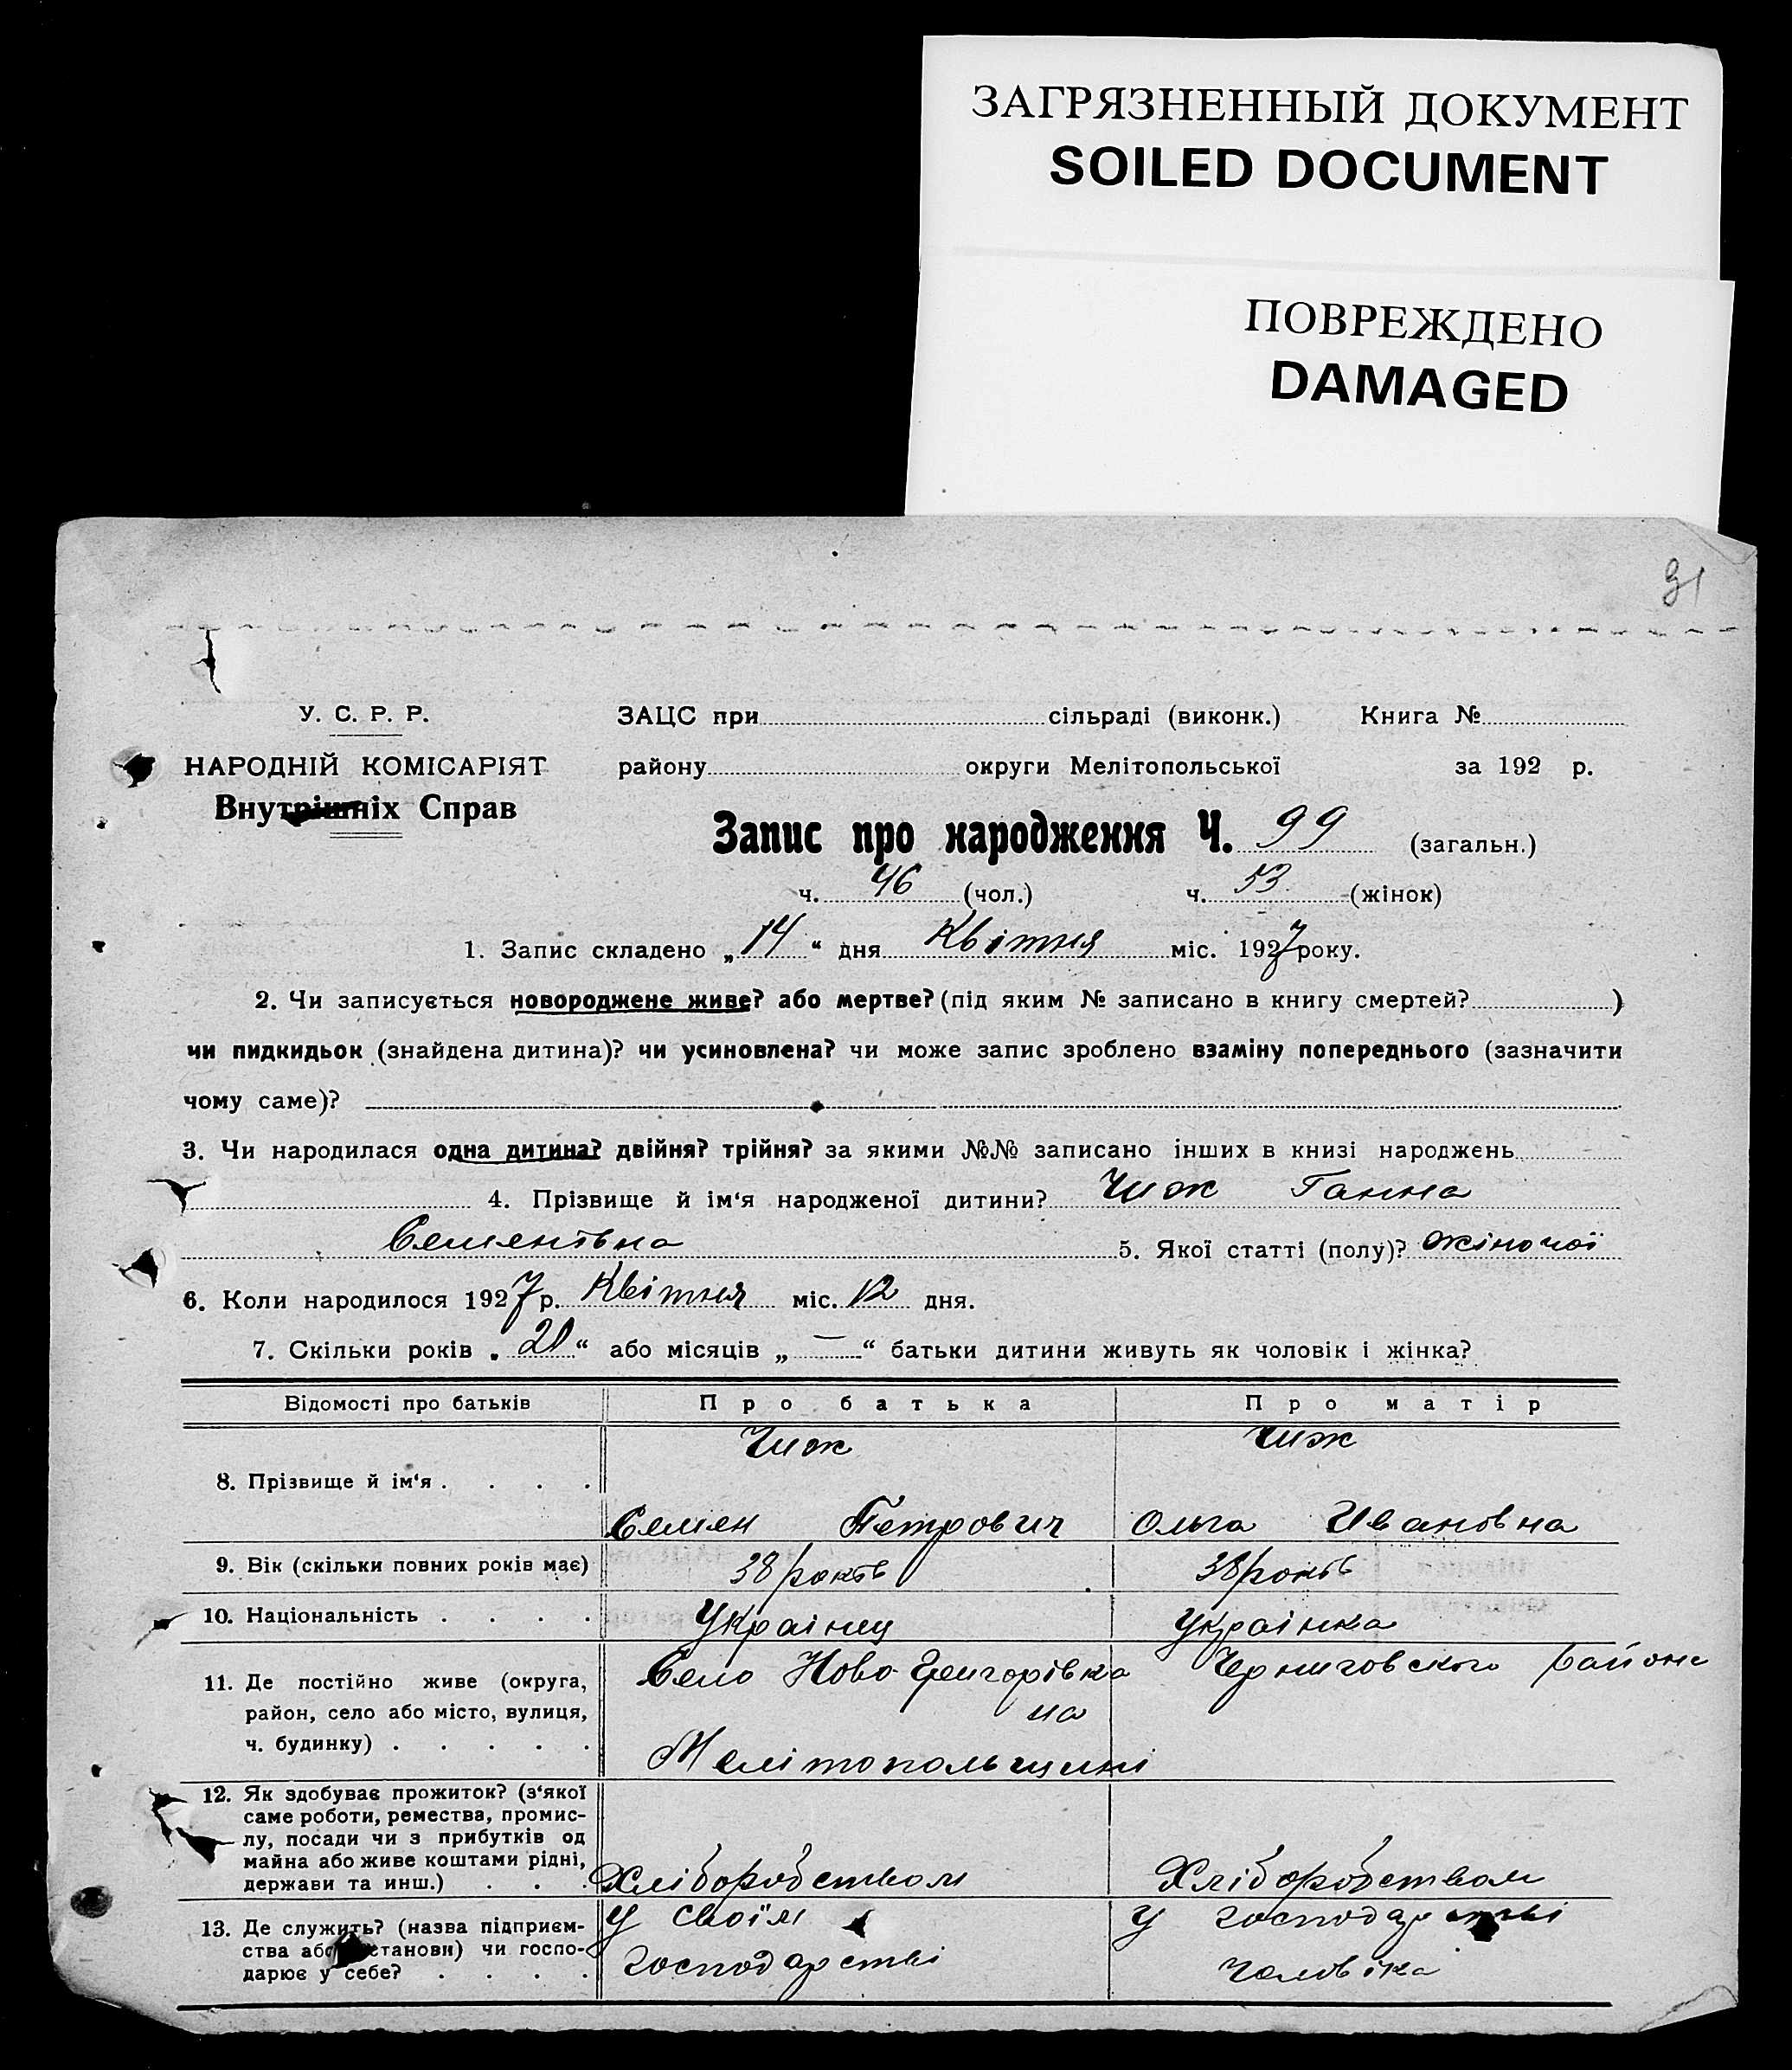 ЗАГРЯЗНЕННЫЙ ДОКУМЕНТ
SOILED DOCUMENT
ПОВРЕЖДЕНО
DAMAGED
91
У. С. Р. Р. ЗАЦС при сільраді (виконк.) Книга №
НАРОДНІЙ КОМІСАРІЯТ району округи Мелітопольської за 192 р.
Внутрішніх Справ
Запис про народження Ч. 99 (загальн.)
ч. 46 (чол.) ч. 53 (жінок)
1. Запис складено „ 14 “ дня Квітня міс. 1927 року.
2. Чи записується новороджене живе? або мертве? (під яким № записано в книгу смертей? )
чи пидкидьок (знайдена дитина)? чи усиновлена? чи може запис зроблено взаміну попереднього (зазначити
чому саме)?
3. Чи народилася одна дитина? двійня? трійня? за якими №№ записано інших в книзі народжень
4. Прізвище й ім‘я народженої дитини? Чиж Ганна
Семенівна 5. Якої статті (полу)? жіночої
6. Коли народилося 1927 р. Квітня міс. 12 дня.
7. Скільки років „ 20 “ або місяців „ — “ батьки дитини живуть як чоловік і жінка?
Відомості про батьків Про батька Про матір
Чиж Чиж
8. Прізвище й ім‘я . . . .
Семен Петрович Ольга Ивановна
9. Вік (скільки повних років має) 38 років 38 років
10. Національність . . . . Украінец Украінка
11. Де постійно живе (округа, Село Ново Григорівка Черниговского району
район, село або місто, вулиця, на
ч. будинку) . . . . . Мелітопольщині
12. Як здобуває прожиток? (з‘якої
саме роботи, ремества, промис-
лу, посади чи з прибутків од
майна або живе коштами рідні,
держави та инш.) . . . Хліборобством Хліборобством
13. Де служить? (назва підприєм- У своїм У господарстві
ства або установи) чи госпо-
дарює у себе? . . . . господарстві чоловіка